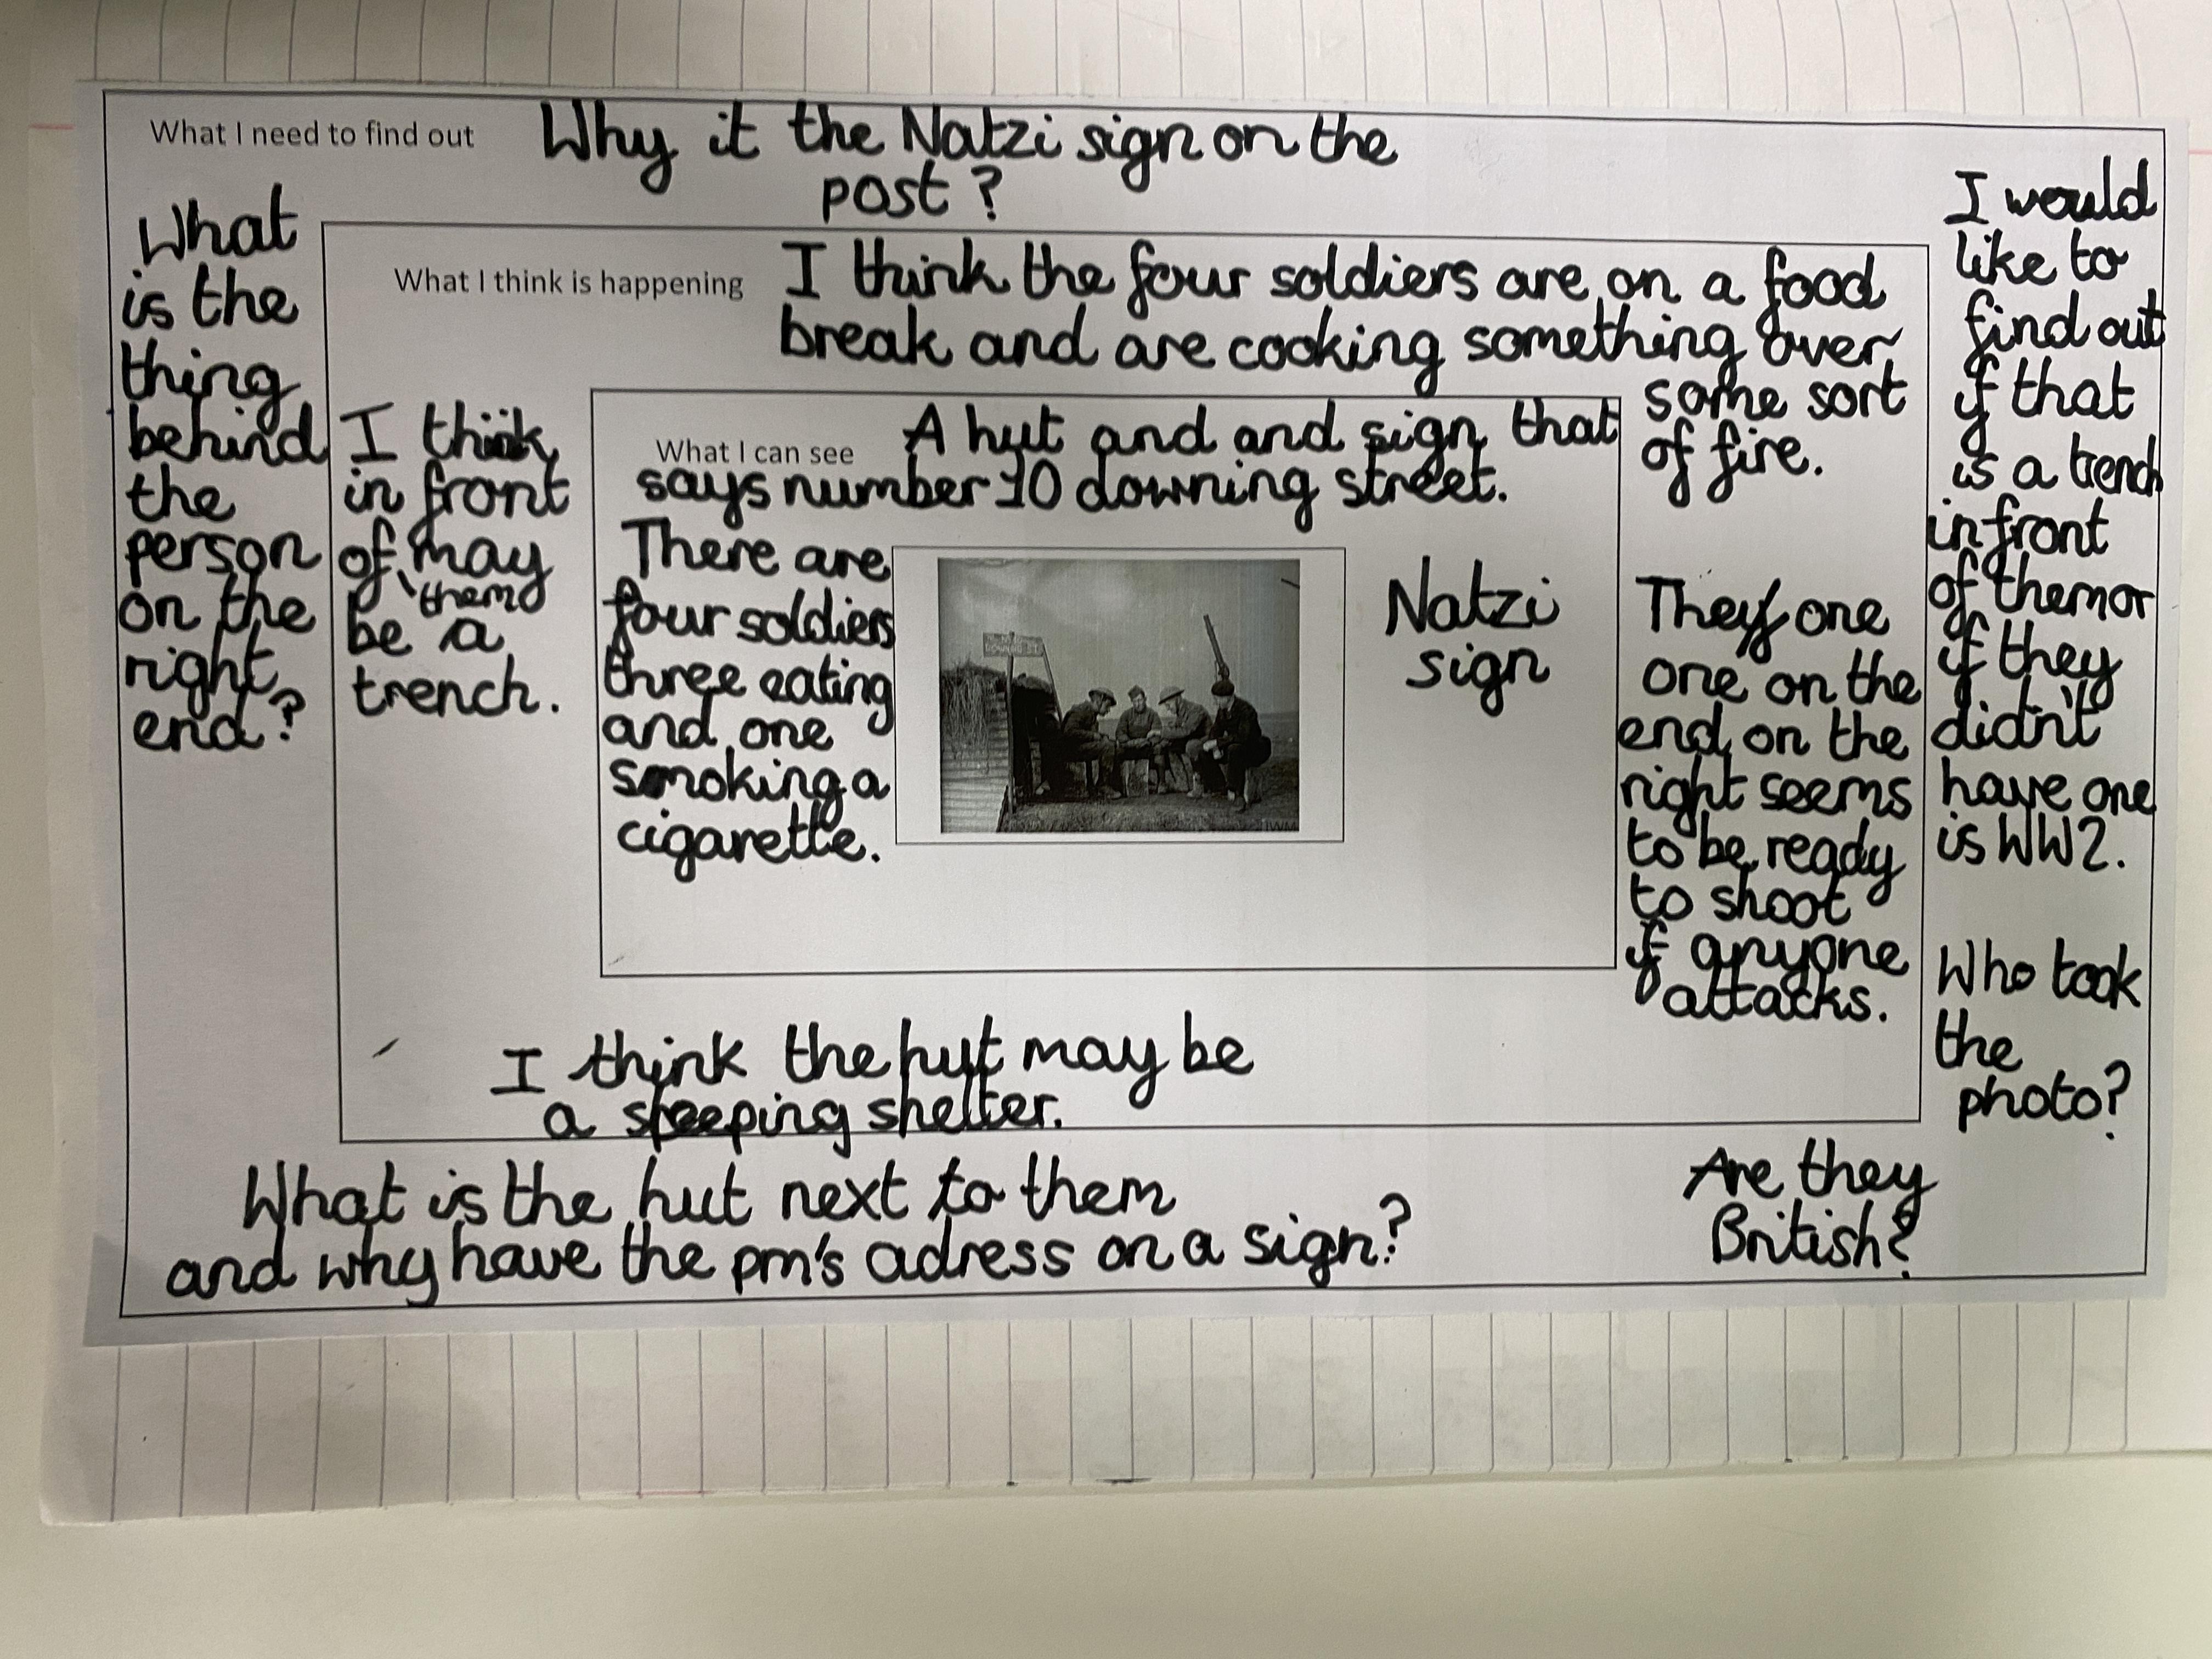 What I need to find out
Why it the Natzi sign on the
post?
What
is the
thing
behind
the
person
on the
right
end?
I would
like to
find out
if that
is a trench
in front
of them or
if they
didn't
have one
is WW2.
Who took
the
photo?
Are they
British?
What is the hut next to them
and why have the pm's adress on a sign?
What I think is happening
I think the four soldiers are on a food
break and are cooking something over
some sort
of fire.
I think
in front
of may
them
be a
trench.
They one
one on the
end on the
right seems
to be ready
to shoot
if anyone
attacks.
I think the hut may be
a sleeping shelter.
What I can see
A hut and and sign that
says number 10 downing street.
There are
four soldiers
three eating
and one
smoking a
cigarette.
Natzi
sign
DOWNING ST
IWM